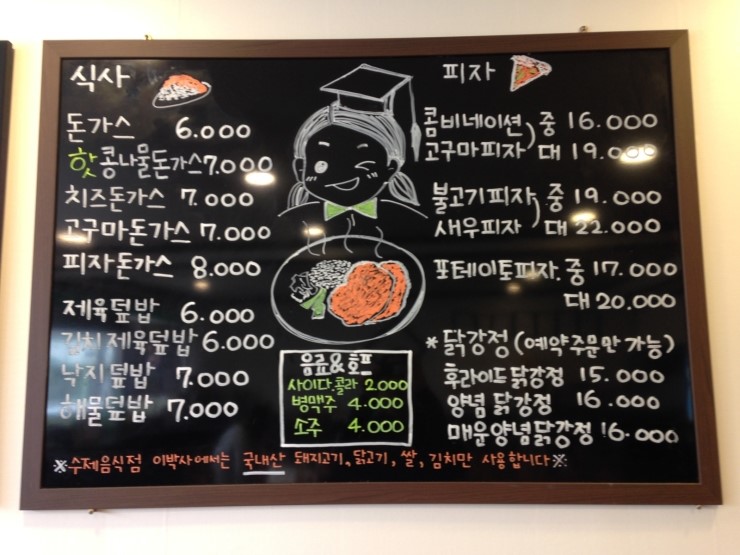 식사
돈가스 6.000
핫 콩나물돈가스 7.000
치즈돈가스 7.000
고구마돈가스 7.000
피자돈가스 8.000
제육덮밥 6.000
김치제육덮밥 6.000
낙지덮밥 7.000
해물덮밥 7.000
음료&호프
사이다,콜라 2.000
병맥주 4.000
소주 4.000
피자
콤비네이션 중 16.000
고구마피자 대 19.000
불고기피자 중 19.000
새우피자 대 22.000
포테이토피자. 중 17.000
대 20.000
* 닭강정 (예약주문만 가능)
후라이드 닭강정 15.000
양념 닭강정 16.000
매운양념닭강정 16.000
※수제음식점 이박사에서는 국내산 돼지고기, 닭고기, 쌀, 김치만 사용합니다※